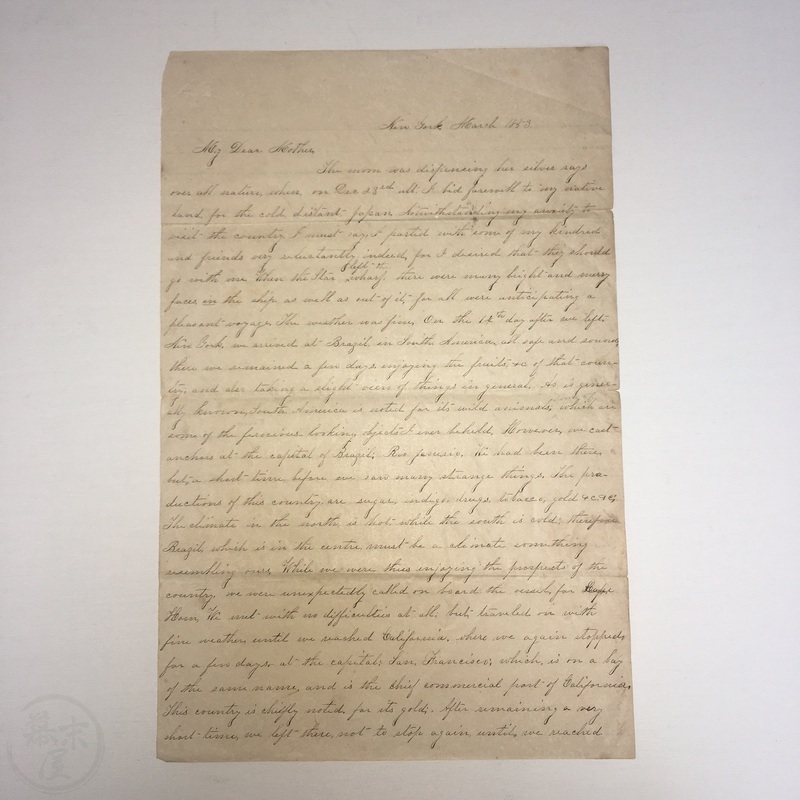 New York March
My Dear Mother,
The moon was dispensing her silver rays
over all nature, when, on Dec 23rd ult. I bid farewell to my native
land, for the cold distant Japan. Notwithstanding my anxiety to
visit the country I must say, I parted with some of my kindred
and friends very reluctantly indeed, for I desired that they should
go with me. When the Star left the wharf, there were many bright and merry
faces in the ship as well as out of it, for all were anticipating a
pleasant voyage. The weather was fine. On the 12th day after we left
New York, we arrived at Brazil in South America, all safe and sound,
there we remained a few days enjoying the fruits, &c of that coun-
try, and also taking a slight view of things in general. As is gener-
ally known, South America is noted for its wild animals, which are
some of the ferocious looking objects I ever beheld. However, we cast
anchors at the capital of Brazil; Rio Janeiro. We had been there
but a short time before we saw many strange things. The pro-
ductions of this country are sugar, indigo, drugs, tobacco, gold &c.
The climate in the north is hot while the south is cold; therefore
Brazil which is in the centre must be a climate something
resembling ours. While we were thus enjoying the prospects of the
country, we were unexpectedly called on board the vessel, for Cape
Horn. We met with no difficulties at all, but traveled on with
fine weather until we reached California, where we again stopped
for a few days at the capital; San Francisco; which is on a bay
of the same name, and is the chief commercial port of California.
This country is chiefly noted for its gold. After remaining a very
short time, we left there, not to stop again until we reached
暮 屋